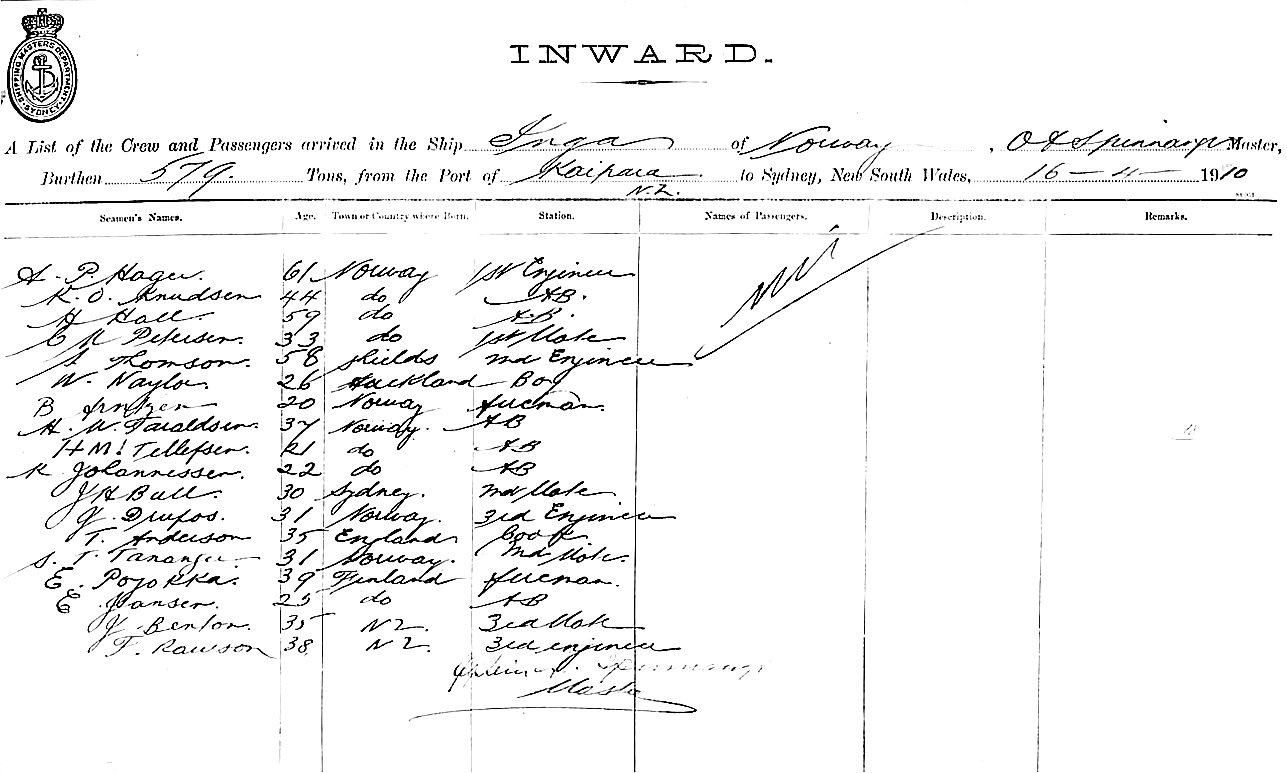 SHIPPING MASTERS DEPARTMENT SYDNEY
INWARD.
A List of the Crew and Passengers arrived in the Ship Inga of Norway, Master,
Burthen 579. Tons, from the Port of Kaipara N.Z. to Sydney, New South Wales, 16-11-1910
Seamen's Names. Age. Town or Country where Born. Station. Names of Passengers. Description. Remarks.
Nil
A. P. Hager. 61 Norway 1st Engineer
K. O. Knudsen 44 do AB.
H Hall. 59 do A.B.
Petersen. 33 do 1st Mate
A Thomson. 58 Shields 2nd Engineer
W. Naylor. 26 Auckland Boy
B Arntzen 20 Norway fireman.
Taraldsen. 37 Norway. AB
H M! Tellefsen. 21 do AB
K Johannessen. 22 do AB
J H Bull. 30 Sydney. 2nd Mate
31 Norway. 3rd Engineer
T. Anderson 35 England Cook
S. T. Tananger 31 Norway. 2nd Mate.
E. Pojokka. 39 Finland fireman.
E Jansen. 25 do AB
J Benton. 35 NZ. 3rd Mate
F. Rawson 38 NZ. 3rd engineer
Master